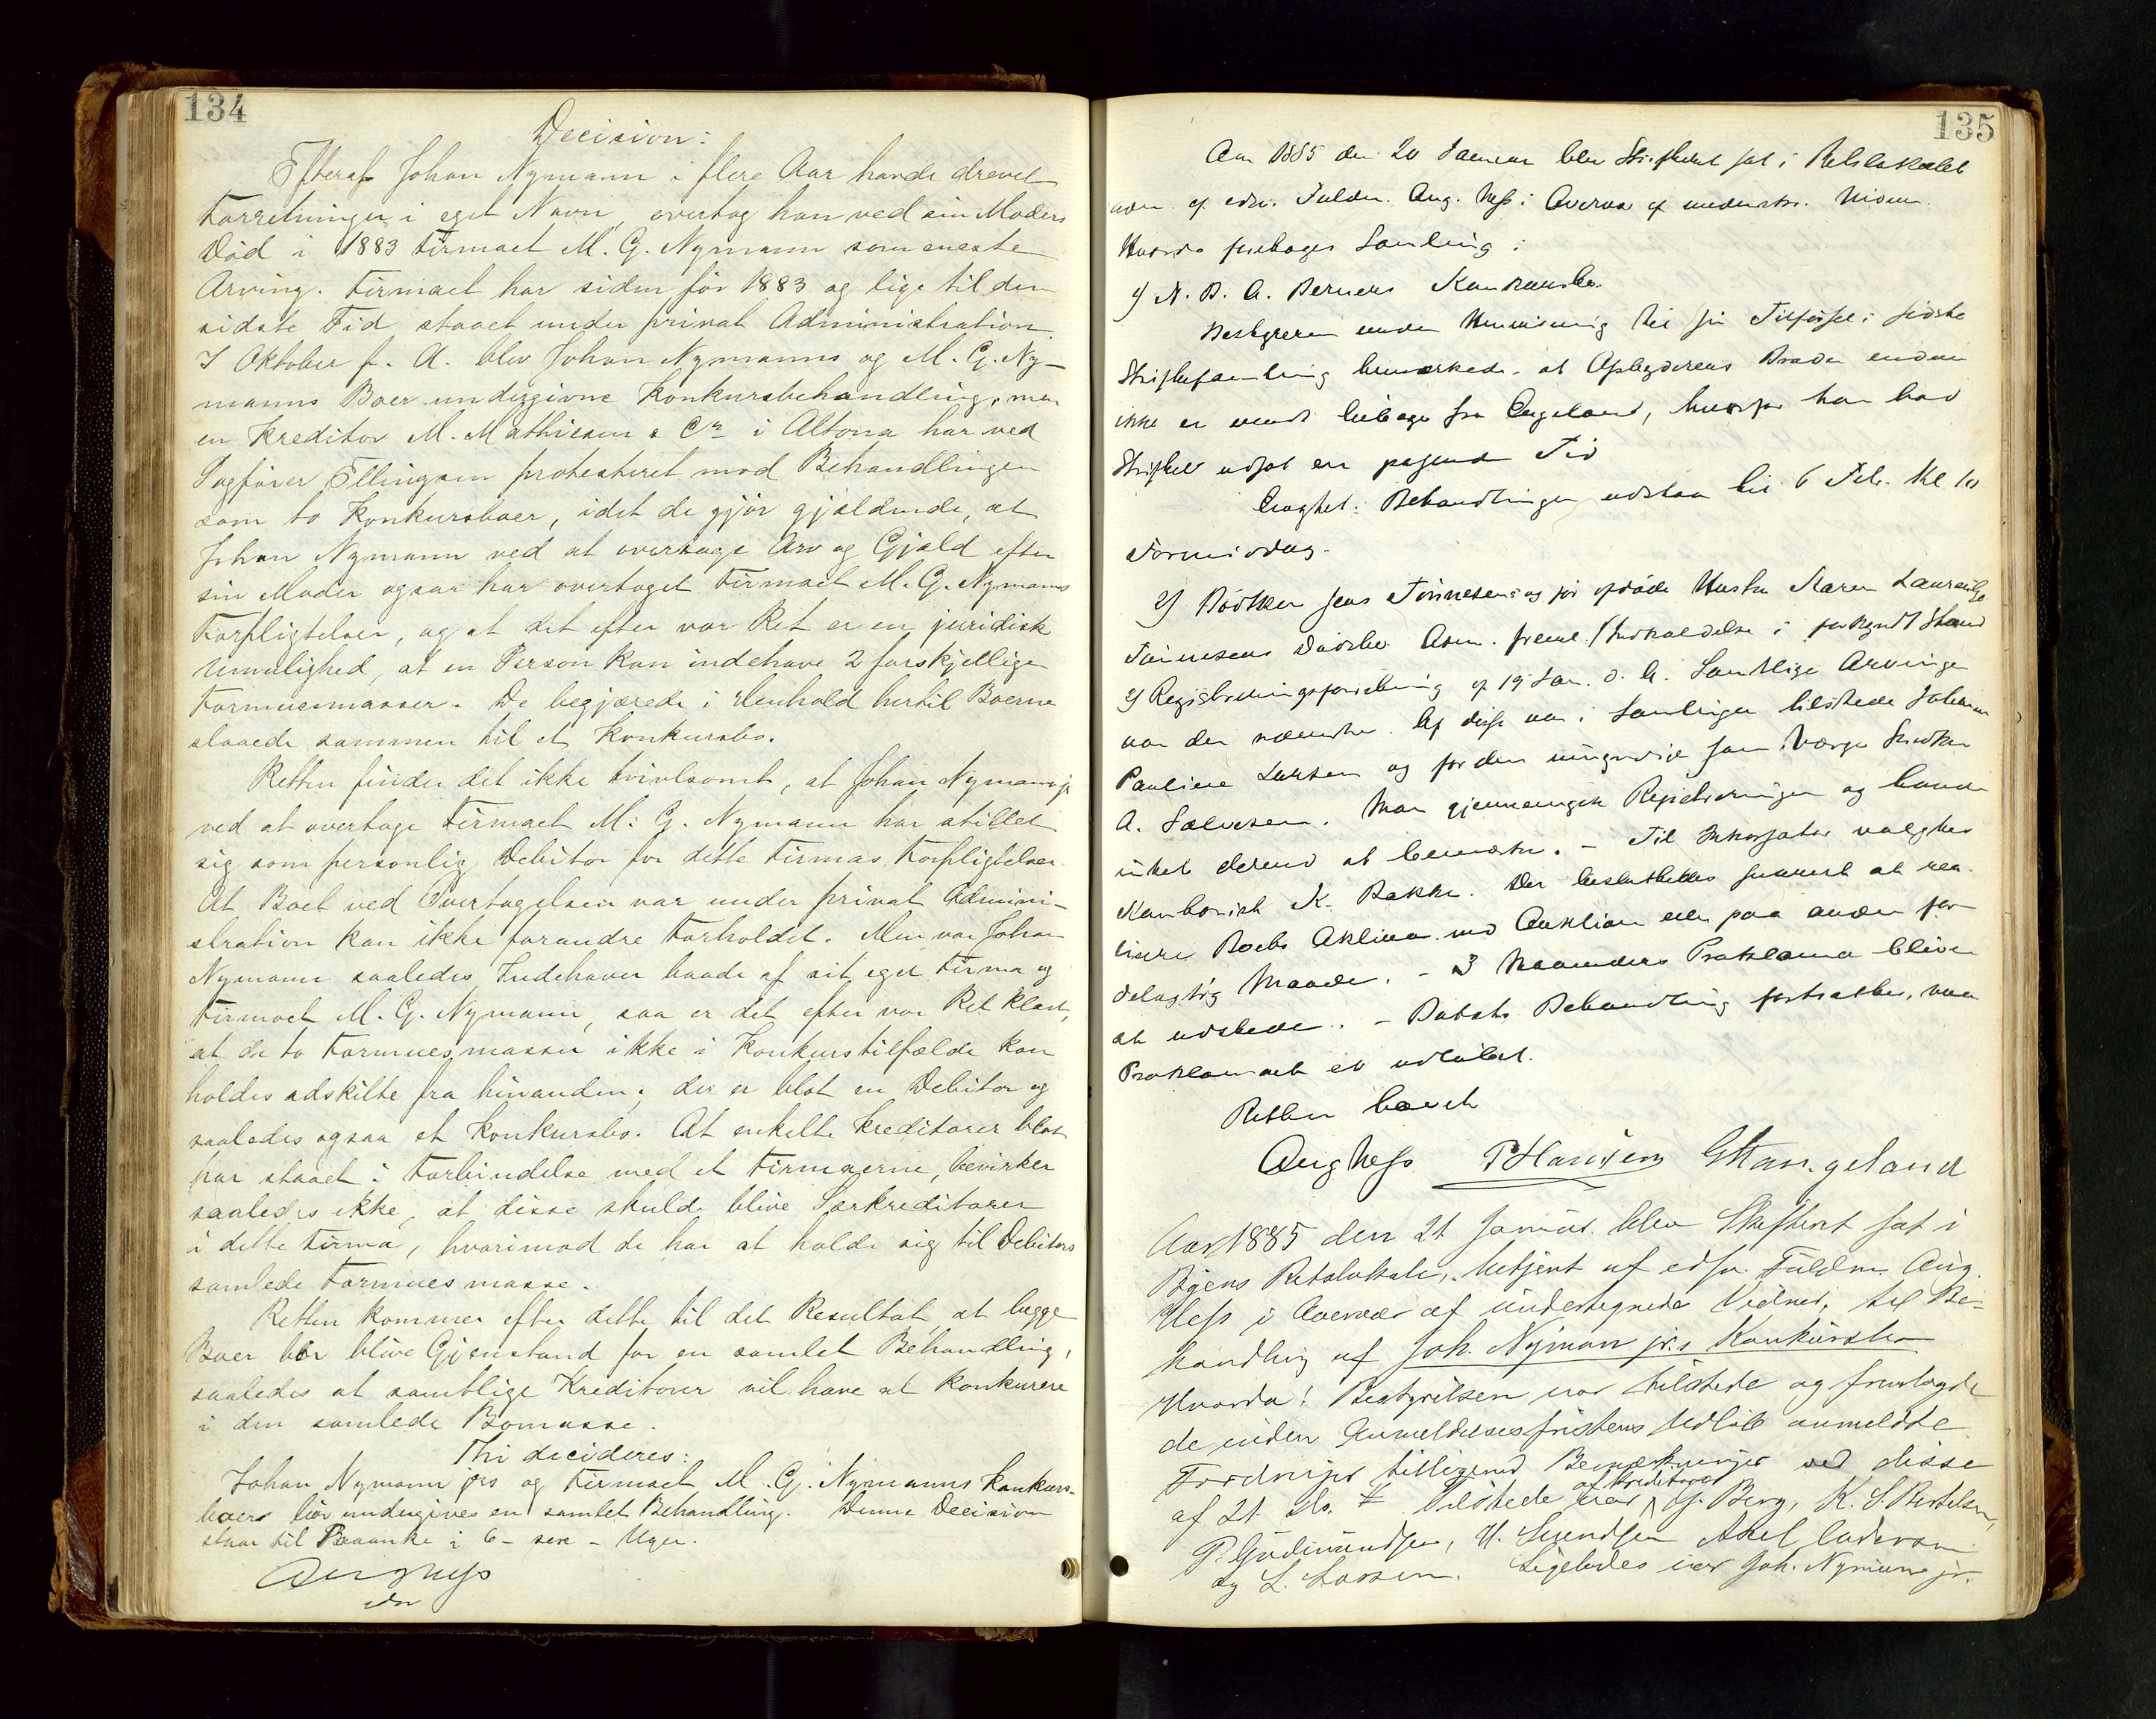 134
Decision:
Efterat Johan Nymann i flere Aar havde drevet
Forretninger i eget Navn, overtog han ved sin Moders
Død i 1883 Firmaet M. G. Nymann som eneste
Arving. Firmaet har siden før 1883 og lige til den
sidste Tid staaet under privat Administration.
I Oktober f. A. blev Johan Nymanns og M. G. Ny-
manns Boer undergivne Konkursbehandling, men
en Kreditor M. Mathiesen & Co i Altona har ved
Sagfører Ellingsen protesteret mod Behandlingen
som to Konkursboer, idet de gjør gjældende, at
Johan Nymann ved at overtage Arv og Gjæld efter
sin Moder ogsaa har overtaget Firmaet M. G. Nymanns
Forpligtelser, og at det efter vor Ret er en juridisk
Umulighed, at en Person kan indehave 2 forskjellige
Formuesmasser. De begjærede i Henhold hertil Boerne
slaaede sammen til et Konkursbo.
Retten finder det ikke tvivlsomt, at Johan Nymann jr
ved at overtage Firmaet M. G. Nymann har stillet
sig som personlig Debitor for dette Firmas Forpligtelser.
At Boet ved Overtagelsen var under privat Admini-
stration kan ikke forandre Forholdet. Men var Johan
Nymann saaledes Indehaver baade af sit eget Firma og
Firmaet M. G. Nymann, saa er det efter vor Ret klart,
at de to Formuesmasser ikke i Konkurstilfælde kan
holdes adskilte fra hinanden; der er blot en Debitor og
saaledes ogsaa et Konkursbo. At enkelte Kreditorer blot
har staaet i Forbindelse med et Firmaerne, bevirker
saaledes ikke, at disse skulde blive Særkreditorer
i dette Firma, hvorimod de har at holde sig til Debitors
samlede Formuesmasse.
Retten kommer efter dette til det Resultat, at begge
Boer bør blive Gjenstand for en samlet Behandling,
saaledes at samtlige Kreditorer vil have at konkurere
i den samlede Bomasse.
Thi decideres:
Johan Nymann jrs og Firmaet M. G. Nymanns Konkurs-
boer bør undergives en samlet Behandling. Denne Decision
staar til Paaanke i 6 - sex - Uger.
Aug Hess
135
Aar 1885 den 20 Januar blev Skifteret sat i Retslokalet
af edsv. Fuldm. Aug. Hess i Overvær af undertn. Vidner.
Hvorda foretoges Samling i
1) N. B. A. Berners Konkursbo.
Bestyreren under Henvisning til sin Tilførsel i sidste
Skiftesamling bemærkede at Opbyderens Broder endnu
ikke er vendt tilbage fra England, hvorfor han bad
Skiftet udsat en passende Tid
Eragtet: Behandlingen udstaar til 6 Feb. Kl 10
Formiddag.
2) Bødker Jens Tønnesens og før afdøde Hustru Karen
Tønnesens Dødsbo. Adm. freml. 1) Indkaldelse i forkyndt Stand
2) Registreringsforretning af 19 Jan. d. A. Samtlige Arvinger
var der nævnte. Af disse var i Samlingen tilstede Johanna
Pauline Larsen og for den umyndige som Værge Snedker
A. Salvesen. Man gjennemgik Registreringen og havde
intet derved at bemærke. - Til Inkassator valgtes
Kontorist K. Bakke. Der besluttedes snarest at rea-
lisere Boets Aktiva ved Auktion eller paa anden for-
delagtig Maade. - 3 Maaneders Proklama bliver
at udstede. - Boets Behandling fortsættes, naar
Proklamaet er udløbet.
Retten hævet
Aug Hess P Hansen G Stangeland
Aar 1885 den 21 Januar blev Skifteret sat i
Byens Retslokale, betjent af edsv. Fuldm. Aug.
Hess i Overvær af undertegnede Vidner, til Be-
handling af Joh. Nyman jr.s Konkursbo
Hvorda! Bestyrelsen var tilstede og fremlagde
de inden Anmeldelsesfristens Udløb anmeldte
Fordringer tilligemed Bemærkninger ved disse
af 21 ds. Tilstede var af Kreditorer J. Berg, K. S. Bertelsen,
P. Gudmundsen, H. Svendsen Axel
og L. Larsen. Ligeledes var Joh. Nyman jr.